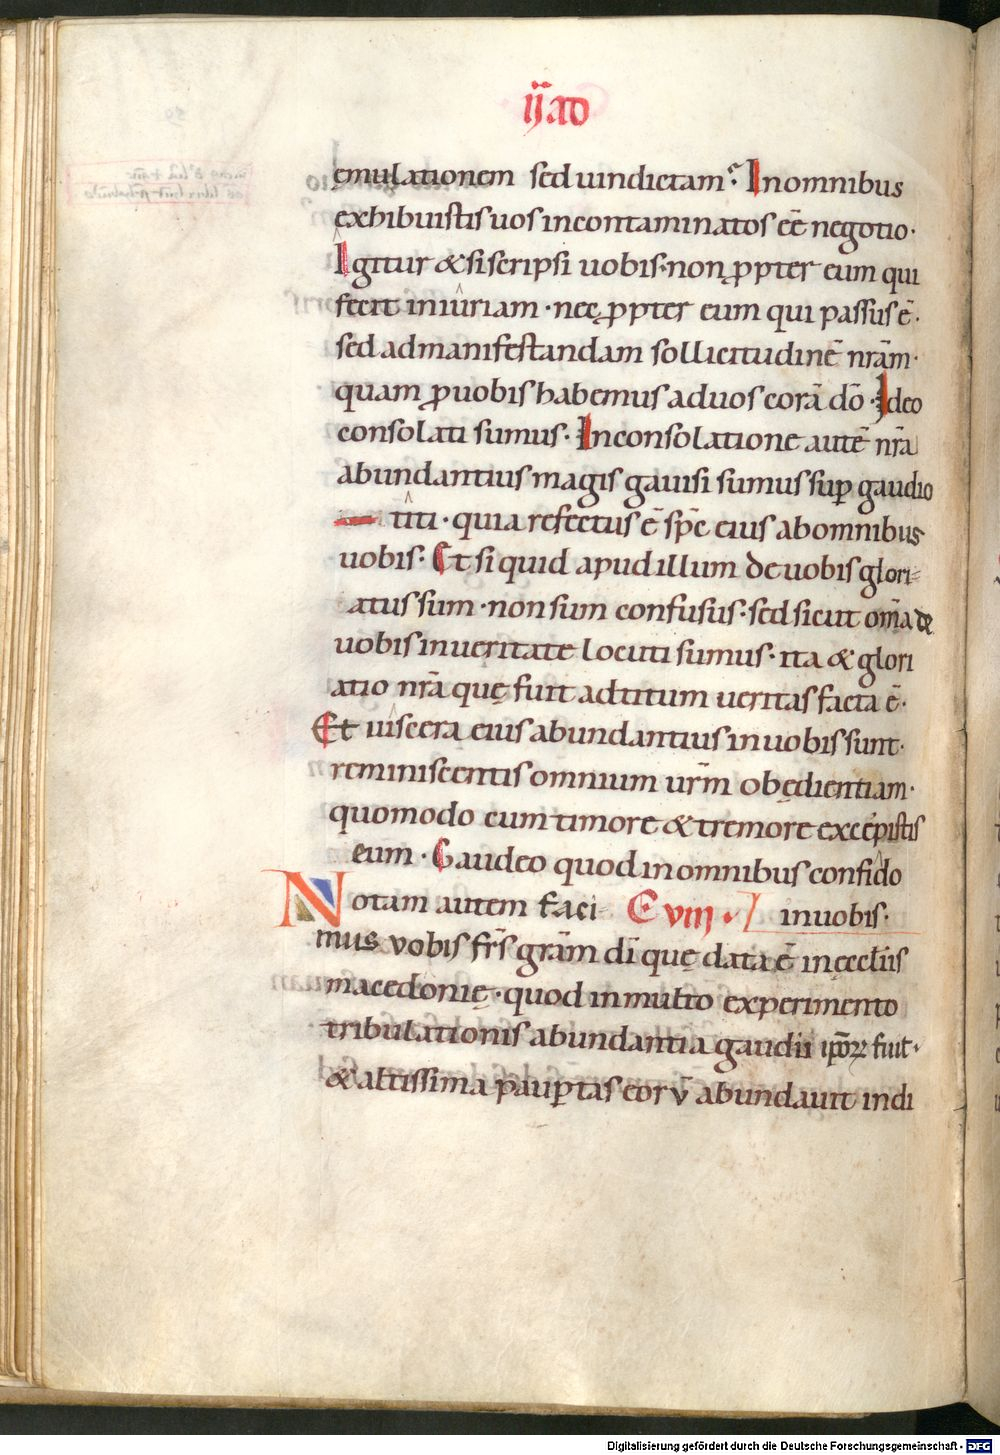 ij ad
ęmulationem sed uindictam · In omnibus
exhibuistis uos incontaminatos eē negotio ·
Igitur & si scripsi uobis · non ꝓpter eum qui
fecit iniuriam · nec ꝓpter eum qui passus ē ·
sed ad manifestandam sollicitudinē nrām ·
quam ꝓ uobis habemus ad uos corā dō · Ideo
consolati sumus · In consolatione autē nrā
abundantius magis gauisi sumus suꝑ gaudio
titi · quia refectus ē sp̄c eius ab omnibus
uobis · Et si quid apud illum de uobis glori-
atus sum · non sum confusus · sed sicut om̄a de
uobis in ueritate locuti sumus · ita & glori
atio nrā quę fuit ad titum ueritas facta ē ·
Et uiscera eius abundantius in uobis sunt ·
reminiscentis omnium urm̄ obędientiam ·
quomodo cum timore & tremore excepistis
eum · Gaudeo quod in omnibus confido
Notam autem faci C VIII · in uobis ·
mus vobis frs̄ grām dī quę data ē in ęccl̄iis
macedonię · quod in multo experimento
tribulationis abundantia gaudii ip̄oꝝ fuit ·
& altissima pauꝑtas eorv̄ abundauit in di
Digitalisierung gefördert durch die Deutsche Forschungsgemeinschaft - DFG